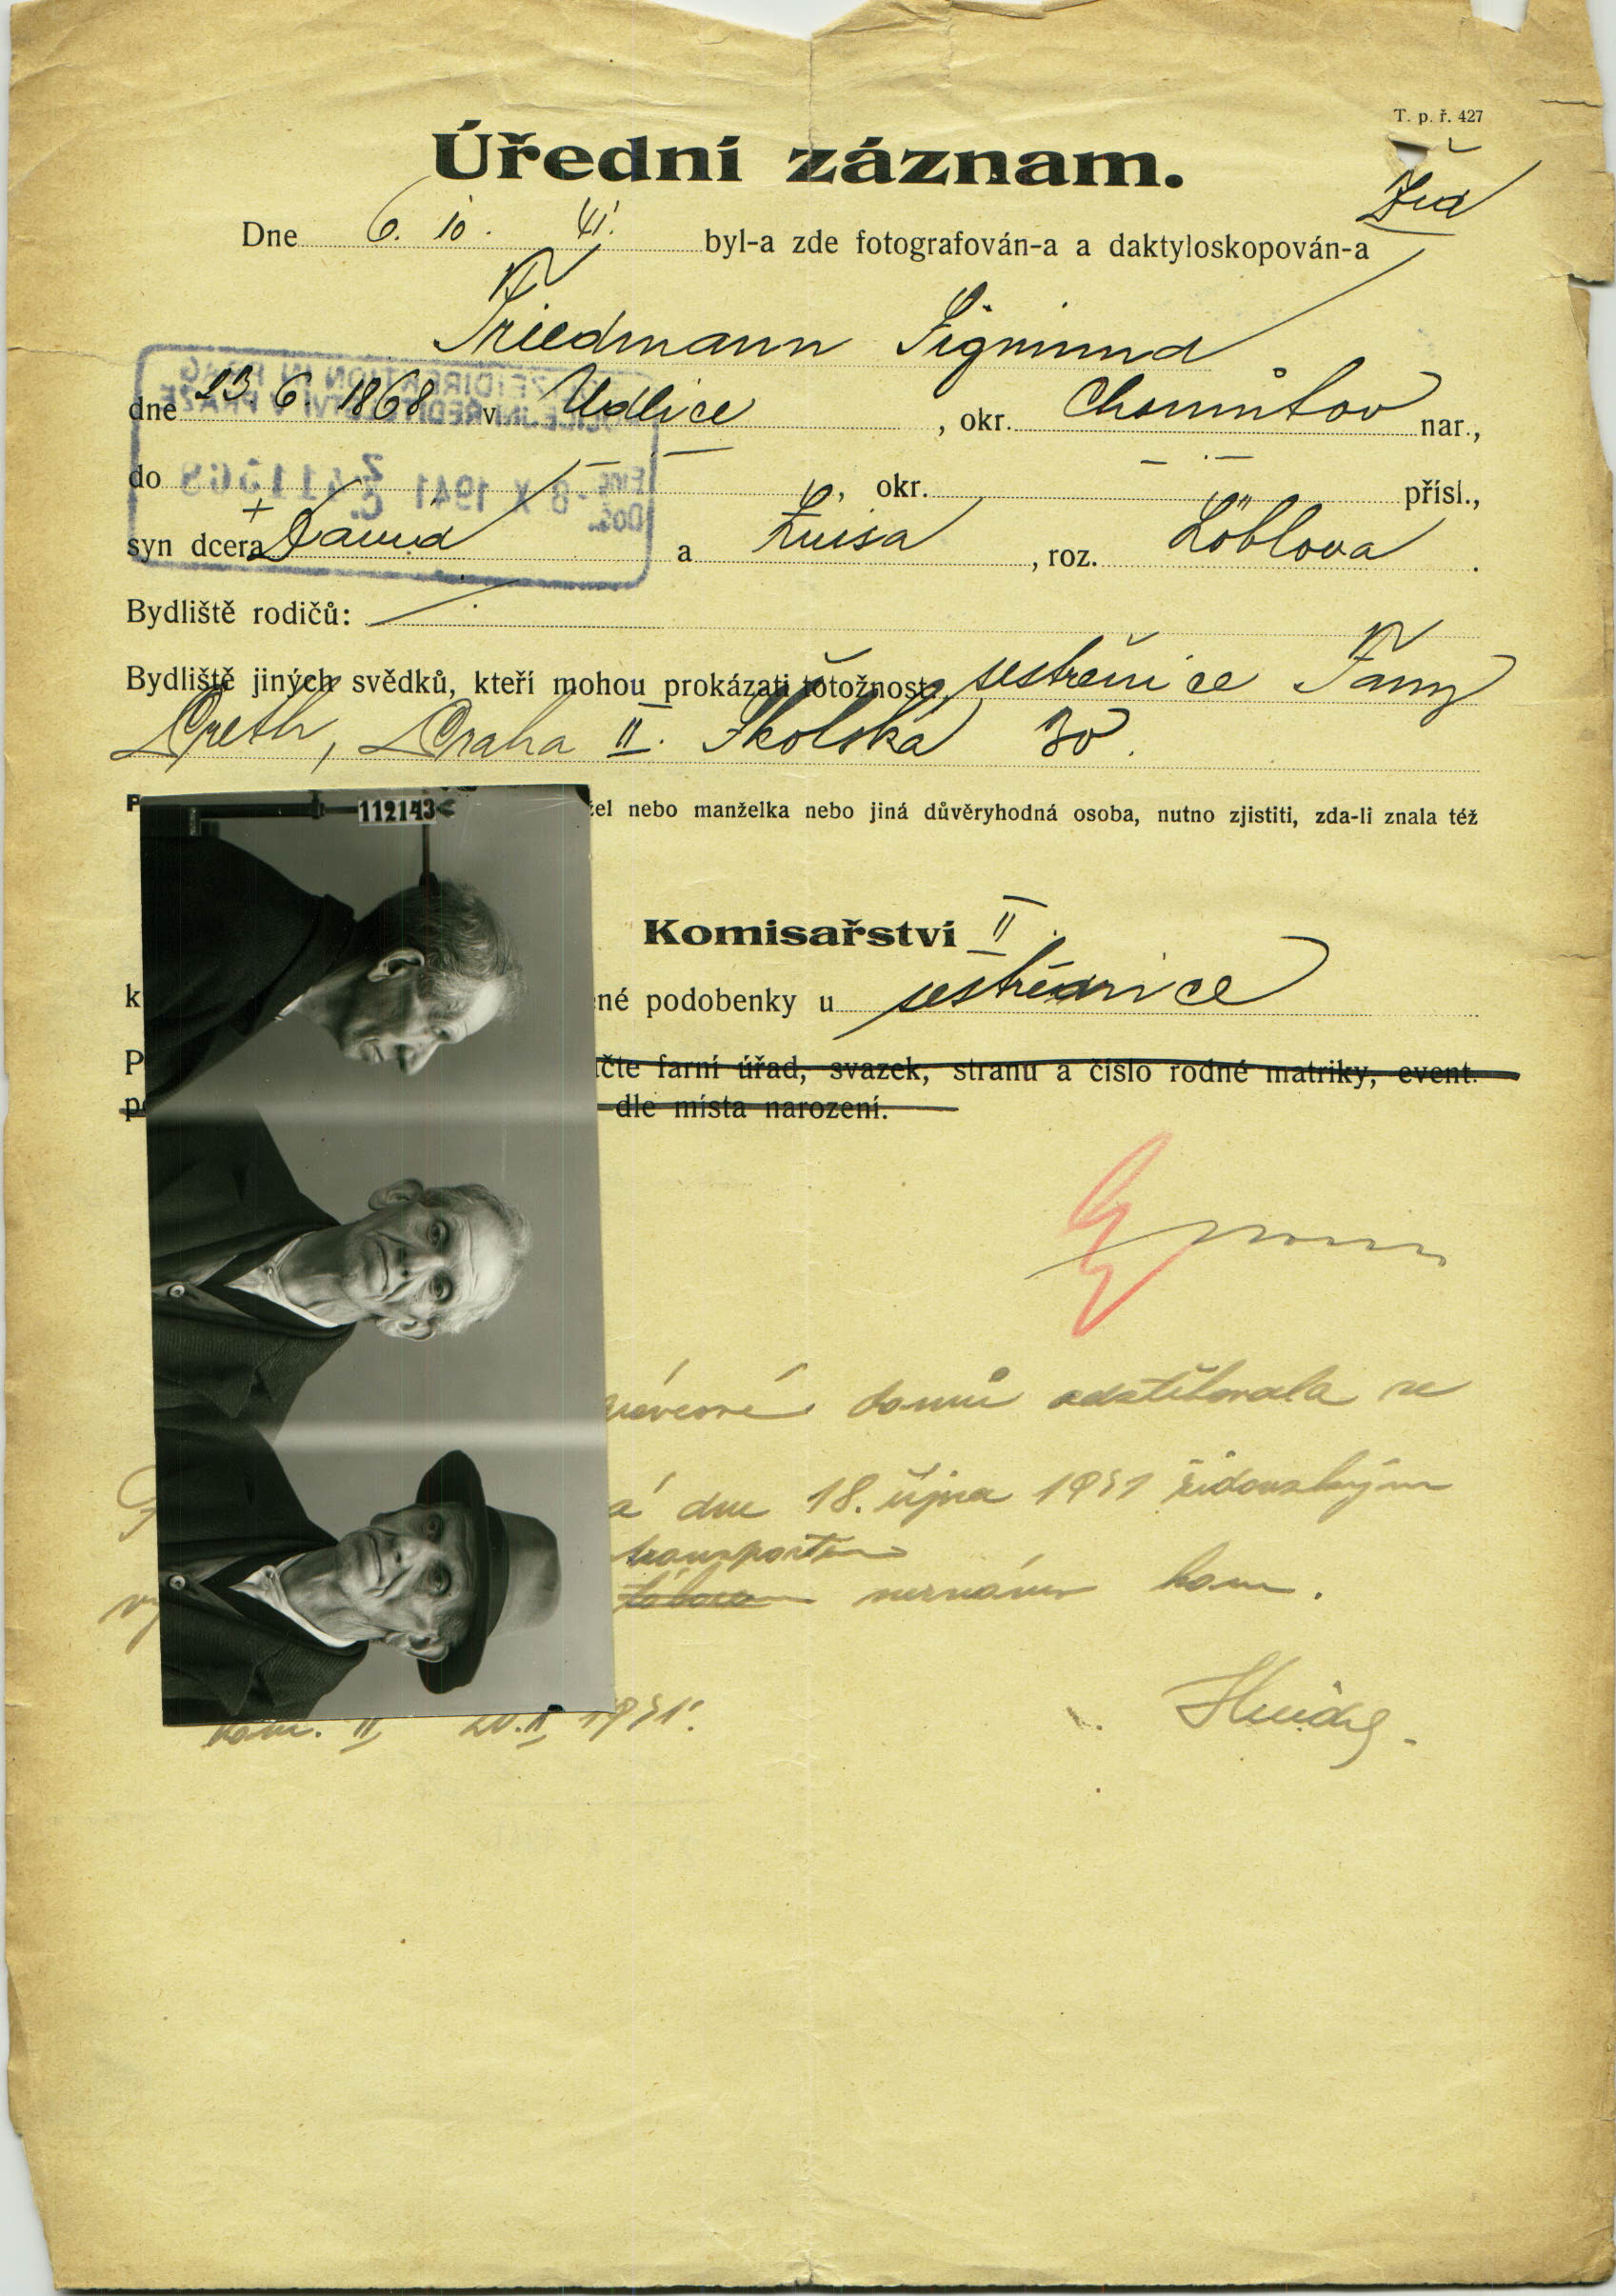 T. p. ř. 427
Úřední záznam.
Žid
Dne 6. 10. 41. byl-a zde fotografován-a a daktyloskopován-a
Friedmann Sigmund
dne 23 6. 1868 v Udlice, okr. Chomutov nar.,
do , okr. přísl.,
syn dcera + David a Luisa, roz. Löblova.
Bydliště rodičů:
Bydliště jiných svědků, kteří mohou prokázati totožnost sestřenice Fanny
Preth, Praha II. Školská 30.
112143
žel nebo manželka nebo jiná důvěryhodná osoba, nutno zjistiti, zda-li znala též
Komisařství II.
k né podobenky u sestřenice
P čte farní úřad, svazek, stranu a číslo rodné matriky, event.
po dle místa narození.
domů odstěhovala se
á dne 18. října 1941 židovským
transportem
neznámo kam.
kom. II 1941.